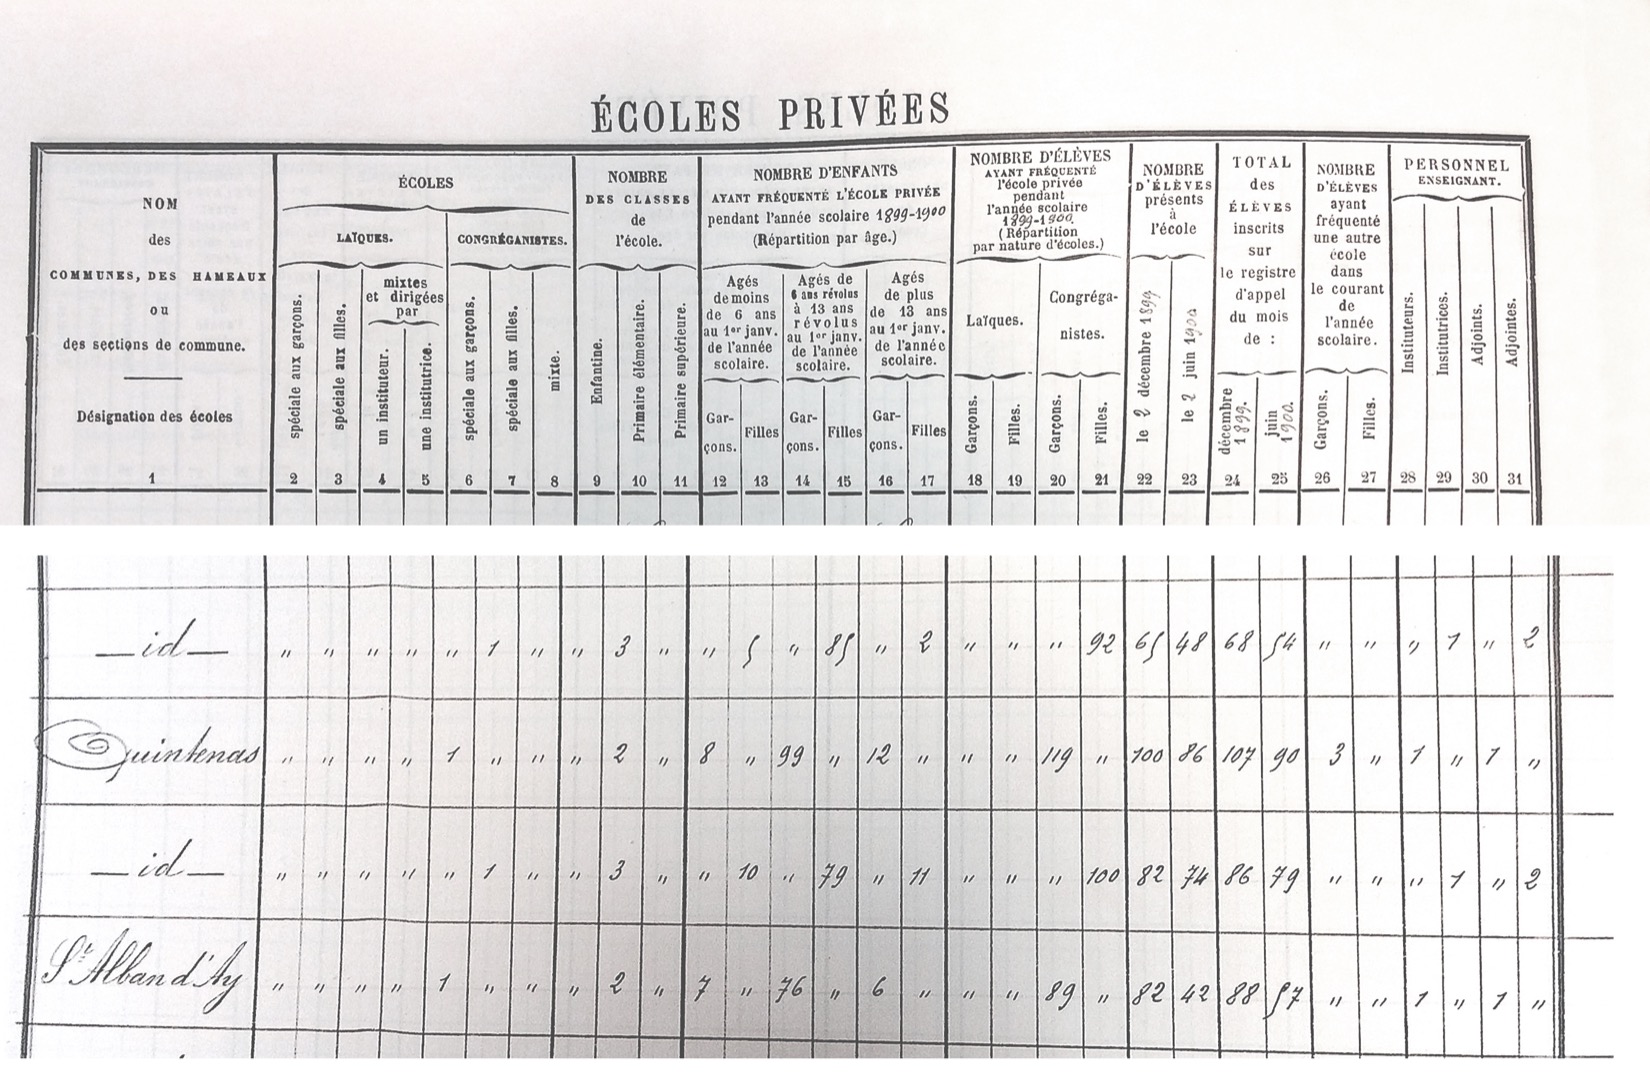 ÉCOLES PRIVÉES
NOM
des
COMMUNES, DES HAMEAUX
ou
des sections de commune.
Désignation des écoles
1
ÉCOLES
LAÏQUES.
spéciale aux garçons.
2
spéciale aux filles.
3
mixtes
et dirigées
par
un instituteur.
4
une institutrice.
5
CONGRÉGANISTES.
spéciale aux garçons.
6
spéciale aux filles.
7
mixte.
8
NOMBRE
DES CLASSES
de
l'école.
Enfantine.
9
Primaire élémentaire.
10
Primaire supérieure.
11
NOMBRE D'ENFANTS
AYANT FRÉQUENTÉ L'ÉCOLE PRIVÉE
pendant l'année scolaire 1899-1900
(Répartition par âge.)
Agés
de moins
de 6 ans
au 1er janv.
de l'année
scolaire.
Gar-
çons.
12
Filles
13
Agés de
6 ans révolus
à 13 ans
révolus
au 1er janv.
de l'année
scolaire.
Gar-
çons.
14
Filles
15
Agés
de plus
de 13 ans
au 1er janv.
de l'année
scolaire.
Gar-
çons.
16
Filles
17
NOMBRE D'ÉLÈVES
AYANT FRÉQUENTÉ
l'école privée
pendant
l'année scolaire
1899-1900
(Répartition
par nature d'écoles.)
Laïques.
Garçons.
18
Filles.
19
Congréga-
nistes.
Garçons.
20
Filles.
21
NOMBRE
D'ÉLÈVES
présents
à
l'école
le 2 décembre 1899
22
le 2 juin 1900
23
TOTAL
des
ÉLÈVES
inscrits
sur
le registre
d'appel
du mois
de :
décembre
1899.
24
juin
1900.
25
NOMBRE
D'ÉLÈVES
ayant
fréquenté
une autre
école
dans
le courant
de
l'année
scolaire.
Garçons.
26
Filles.
27
PERSONNEL
ENSEIGNANT.
Instituteurs.
28
Institutrices.
29
Adjoints.
30
Adjointes.
31
— id — " " " " " 1 " " 3 " " 5 " 85 " 2 " " " 92 65 48 68 54 " " " 1 " 2
Quintenas " " " " 1 " " " 2 " 8 " 99 " 12 " " " 119 " 100 86 107 90 3 " 1 " 1 "
— id — " " " " " 1 " " 3 " " 10 " 79 " 11 " " " 100 82 74 86 79 " " " 1 " 2
St Alban d'Ay " " " " 1 " " " 2 " 7 " 76 " 6 " " " 89 " 82 42 88 57 " " 1 " 1 "